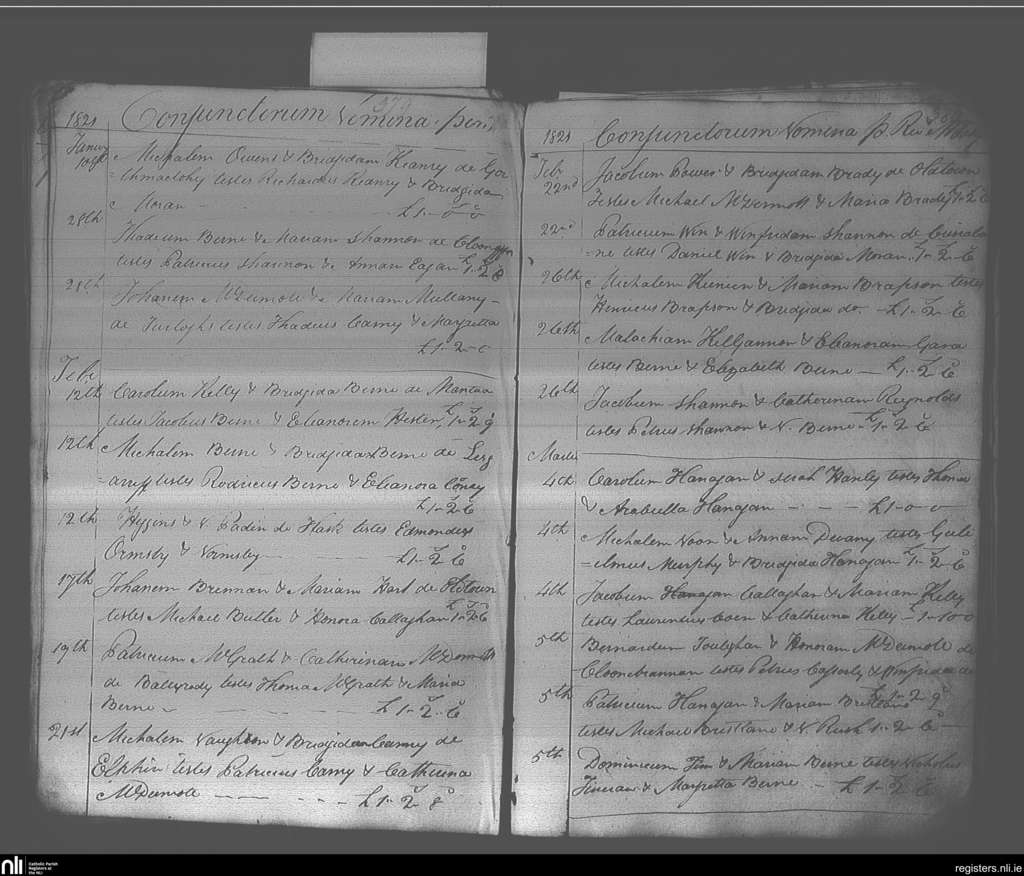 1821 Conjunctorum Nomina per
Januy 10th Michalem Owens & Bridgidam Keanry de Gor
=thmaclohy testes Richardus Keanry & Bridgida
Moran £1-0-0
28th Thadeum Berne & Mariam Shannon de
testes Patricius Shannon & Annam Eagan £1-2-
28th Johanem McDermott & Mariam Mullany
de testes Thadeus Carny & Margretta
£1-2-0
Feb.
12th Carolum Kelly & Bridgida Berne de Mantua
testes Jacobus Berne & Elianorem Hester £1-2-9
12th Michalem Berne & Bridgidam Berne de
testes Rodricus Berne & Elianora
£1-2-6
12th & Padin de Flask testes Edmondus
Ormsby & £1-2-6
17th Johanem Brennan & Mariam Hart de
testes Michael Butler & Honora Callaghan £1-2-6
19th Patricium McGrath & Catherinam McDermott
de testes Thoma McGrath & Maria
Berne £1-2-6
21st Michalem Vaughton & Bridgidam Carney de
Elphin testes Patricius Carny & Catherina
McDermott £1-2-
1821 Conjunctorum Nomina p Revd
Feb
22nd Jacobum Bowes & Bridgidam Brady de Oldtown
Testes Michael McDermott & Maria Brady £1-2-6
22nd Patricium Win & Winfridam Shannon de
=ne testes Daniel Win & Bridgida Moran £1-2-6
26th Michalem & Mariam Brapson testes
Henricus Brapson & Bridgida do. £1-2-6
26th Malachiam KilGannon & Elianoram Gara
testes Berne & Elizabeth Berne £1-2-6
26th Jacobum Shannon & Catherinam Reynolds
testes Petrus Shannon & N. Berne £1-2-6
Martii
4th Carolum Hanagan & Sarah Hanley testes Thoma
& Arabella Hanagan £1-0-0
4th Michalem Noon & Annam Devany testes Guli
=elmus Murphy & Bridgida Hanagan £1-2-6
4th Jacobum Callaghan & Mariam Kelly
testes Laurentius Coen & Catherina Kelly £1-10-0
5th Bernardum & Honoram McDermott de
Cloonebrannan testes Petrus & Winfrida do
£1-2-9
5th Patricium Hanagan & Mariam
testes Michael & N. Rush 1-2-6
5th Dominicum & Mariam Berne testes Nicholus
& Margretta Berne £1-2-6
nli
Catholic Parish
Registers at
the NLI
registers.nli.ie